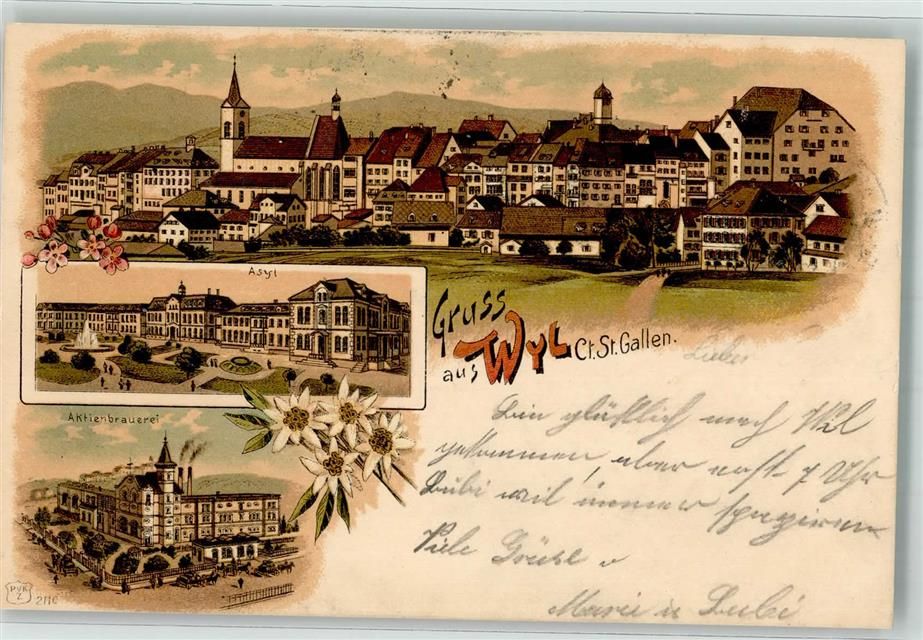 Asyl
Gruss
aus Wyl Ct. St. Gallen.
Aktienbrauerei
Bin glücklich nach Wil
gekommen, aber erst 7 Uhr
Bubi wil immer spaziren
Viele Grüsse
Marie u Bubi
PVK
Z